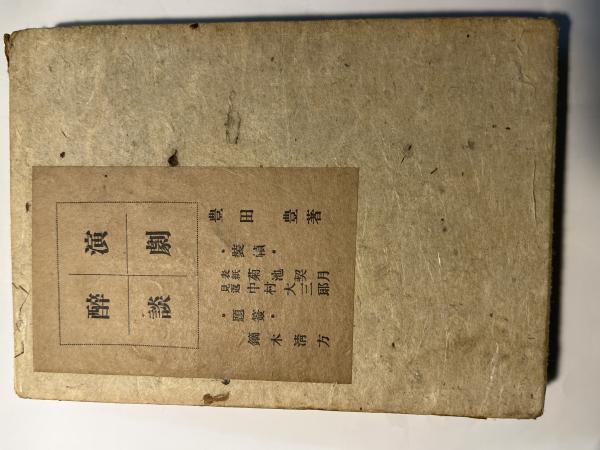 演劇
醉談
豊田豊著
・裝幀・
表紙 菊池契月
見返 中村大三郎
・題簽・
鏑木清方